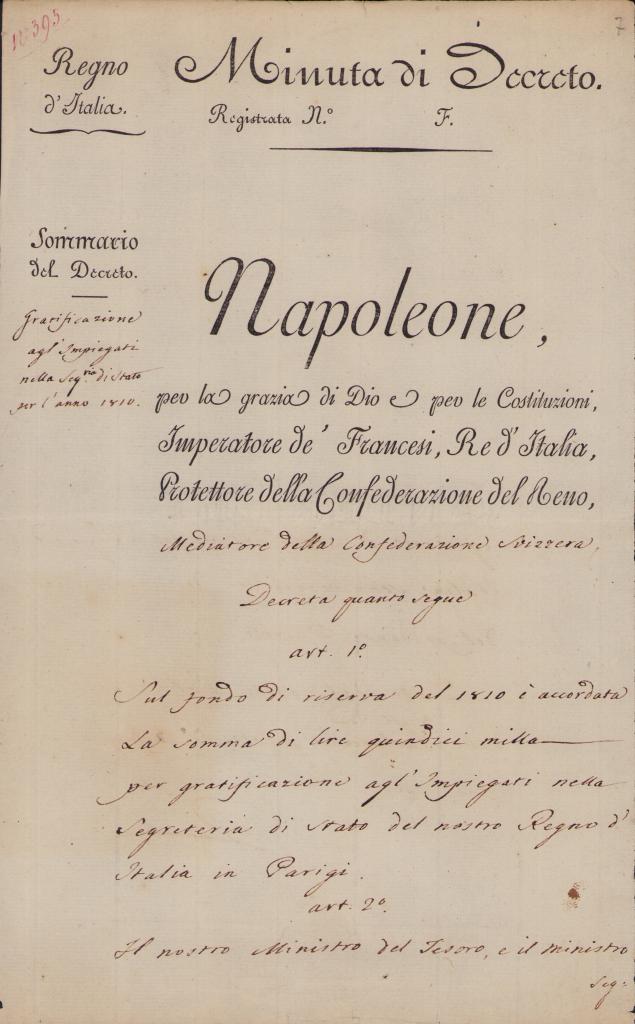 12395
7
Regno
d'Italia.
Minuta di Decreto.
Registrata N.° F.
Sommario
del Decreto.
Gratificazione
agl'Impiegati
nella Seg.ria di Stato
per l'anno 1810.
Napoleone,
per la grazia di Dio e per le Costituzioni,
Imperatore de' Francesi, Re d'Italia,
Protettore della Confederazione del Reno,
Mediatore della Confederazione Svizzera,
Decreta quanto segue
art. 1.°
Sul fondo di riserva del 1810 è accordata
La somma di lire quindici milla
per gratificazione agl'Impiegati nella
Segreteria di Stato del nostro Regno d'
Italia in Parigi.
art. 2.°
Il nostro Ministro del Tesoro, e il ministro
Seg: